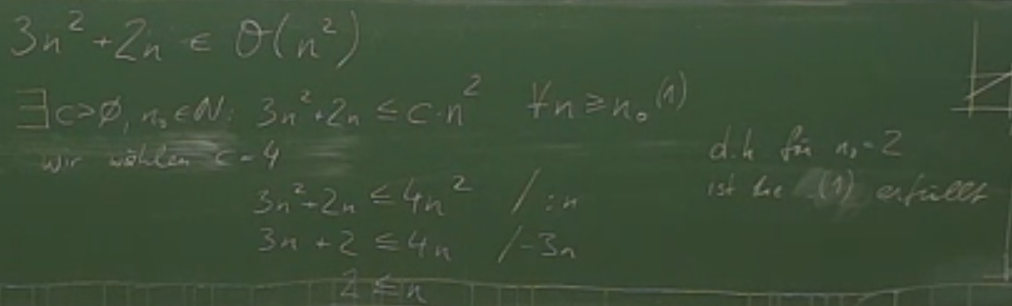 3n² + 2n ∈ O(n²)
∃c>0, n₀∈N: 3n²+2n ≤ c·n² ∀n ≥ n₀ (1)
wir wählen c = 4
3n²+2n ≤ 4n² / :n
3n + 2 ≤ 4n /-3n
2 ≤ n
d.h für n₀=2
ist (1) erfüllt